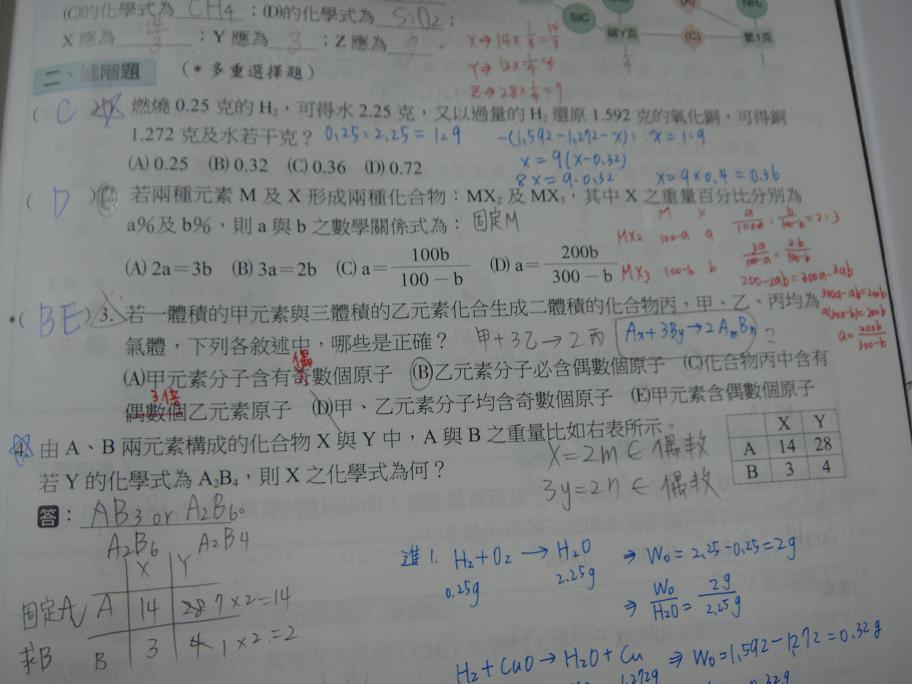 (C)的化學式為 CH4 ;(D)的化學式為 SiO2;
X 應為 14/3 ;Y 應為 3 ;Z 應為 7 。
SiC
NH₃
(C)
氫1克
1/4
1
X→14×1/3=14/3
Y→12×1/4=3
Z→28×1/4=7
二、進階題 (*多重選擇題)
( C ) 燃燒 0.25 克的 H₂,可得水 2.25 克,又以過量的 H₂ 還原 1.592 克的氧化銅,可得銅
1.272 克及水若干克? 0.25:2.25=1:9 -(1.592-1.272-x): x=1:9
(A) 0.25 (B) 0.32 (C) 0.36 (D) 0.72
x=9(x-0.32)
8x=9·0.32 x=9×0.4=0.36
( D ) 2. 若兩種元素 M 及 X 形成兩種化合物:MX₂ 及 MX₃,其中 X 之重量百分比分別為
a%及 b%,則 a 與 b 之數學關係式為: 固定M
(A) 2a=3b (B) 3a=2b (C) a=100b/100-b (D) a=200b/300-b
M X
MX2 100-a a
MX3 100-b b
a/100-a : b/100-b = 2:3
3a/100-a = 2b/100-b
200b-2ab=300a-3ab
300a-ab=200b
a(300-b)=200b
a=200b/300-b
*( BE ) 3. 若一體積的甲元素與三體積的乙元素化合生成二體積的化合物丙,甲、乙、丙均為
氣體,下列各敘述中,哪些是正確? 甲+3乙→2丙 Ax+3By→2AmBn
偶
(A)甲元素分子含有奇數個原子 (B)乙元素分子必含偶數個原子 (C)化合物丙中含有
3倍
偶數個乙元素原子 (D)甲、乙元素分子均含奇數個原子 (E)甲元素含偶數個原子
4. 由 A、B 兩元素構成的化合物 X 與 Y 中,A 與 B 之重量比如右表所示。
若 Y 的化學式為 A₂B₄,則 X 之化學式為何?
X Y
A 14 28
B 3 4
X=2m ∈ 偶數
3y=2n ∈ 偶數
答: AB3 or A2B6。
A2B6 A2B4
X Y
固定A A 14 28 7×2=14
求B B 3 4 1×2=2
進1. H2+O2 → H2O ⇒ Wo=2.25-0.25=2g
0.25g 2.25g
⇒ Wo/H2O = 2g/2.25g
H2+CuO→H2O+Cu ⇒ Wo=1.592-1.272=0.32g
1.272g 0.32g